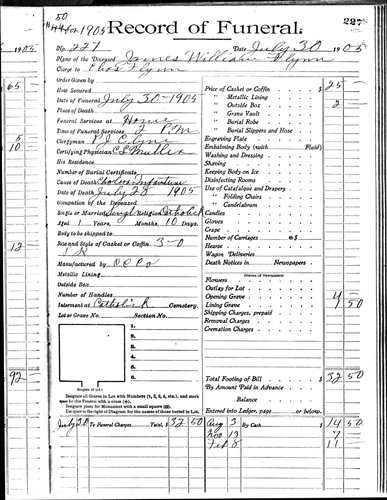 50
1905
Record of Funeral.
227
1905
No. 227
Date July 30 1905
Name of the Deceased James William Flynn
Charge to Chas Flynn
Order Given by
How Secured
Date of Funeral July 30-1905
Place of Death
Funeral Services at Home
Time of Funeral Services 2 P.M
Clergyman P J Clyne
Certifying Physician
His Residence
Number of Burial Certificate
Cause of Death Cholera Infantum
Date of Death July 28 1905
Occupation of the Deceased
Single or Married Single Religion Catholick
Aged 1 Years, Months, 10 Days.
Body to be shipped to
Size and Style of Casket or Coffin 3-0
Manufactured by
Metallic Lining
Outside Box
Number of Handles
Interment at Catholick Cemetery.
Lot or Grave No. Section No.
1.
2.
3.
4.
5.
6.
(Diagram of Lot.)
Designate all Graves in Lot with Numbers (1, 2, 3, 4, etc.), and mark
space for this Funeral with a cross (x).
Designate place for Monument with a small square (□).
Use space to the right of Diagram for the names of those buried in Lot.
July 30 To Funeral Charges Total, $ 32 50
Price of Casket or Coffin $ 25
" Metallic Lining
" Outside Box 2
" Grave Vault
" Burial Robe
" Burial Slippers and Hose
Engraving Plate
Embalming Body (with Fluid)
Washing and Dressing
Shaving
Keeping Body on Ice
Disinfecting Rooms
Use of Catafalque and Drapery
" Folding Chairs
" Candelabrum
Candles
Gloves
Crape
Number of Carriages @ $
Hearse
Wagon Deliveries
Death Notices in Newspapers
(Names of Newspapers)
Flowers $
Outlay for Lot
Opening Grave 4
Lining Grave 1 50
Shipping Charges, prepaid
Removal Charges
Cremation Charges
Total Footing of Bill $ 32 50
By Amount Paid in Advance
Balance
Entered into Ledger, page or below.
Aug 3 By Cash $ 14 50
Nov 13 7
Feb 8 11
65
5
10
12
92